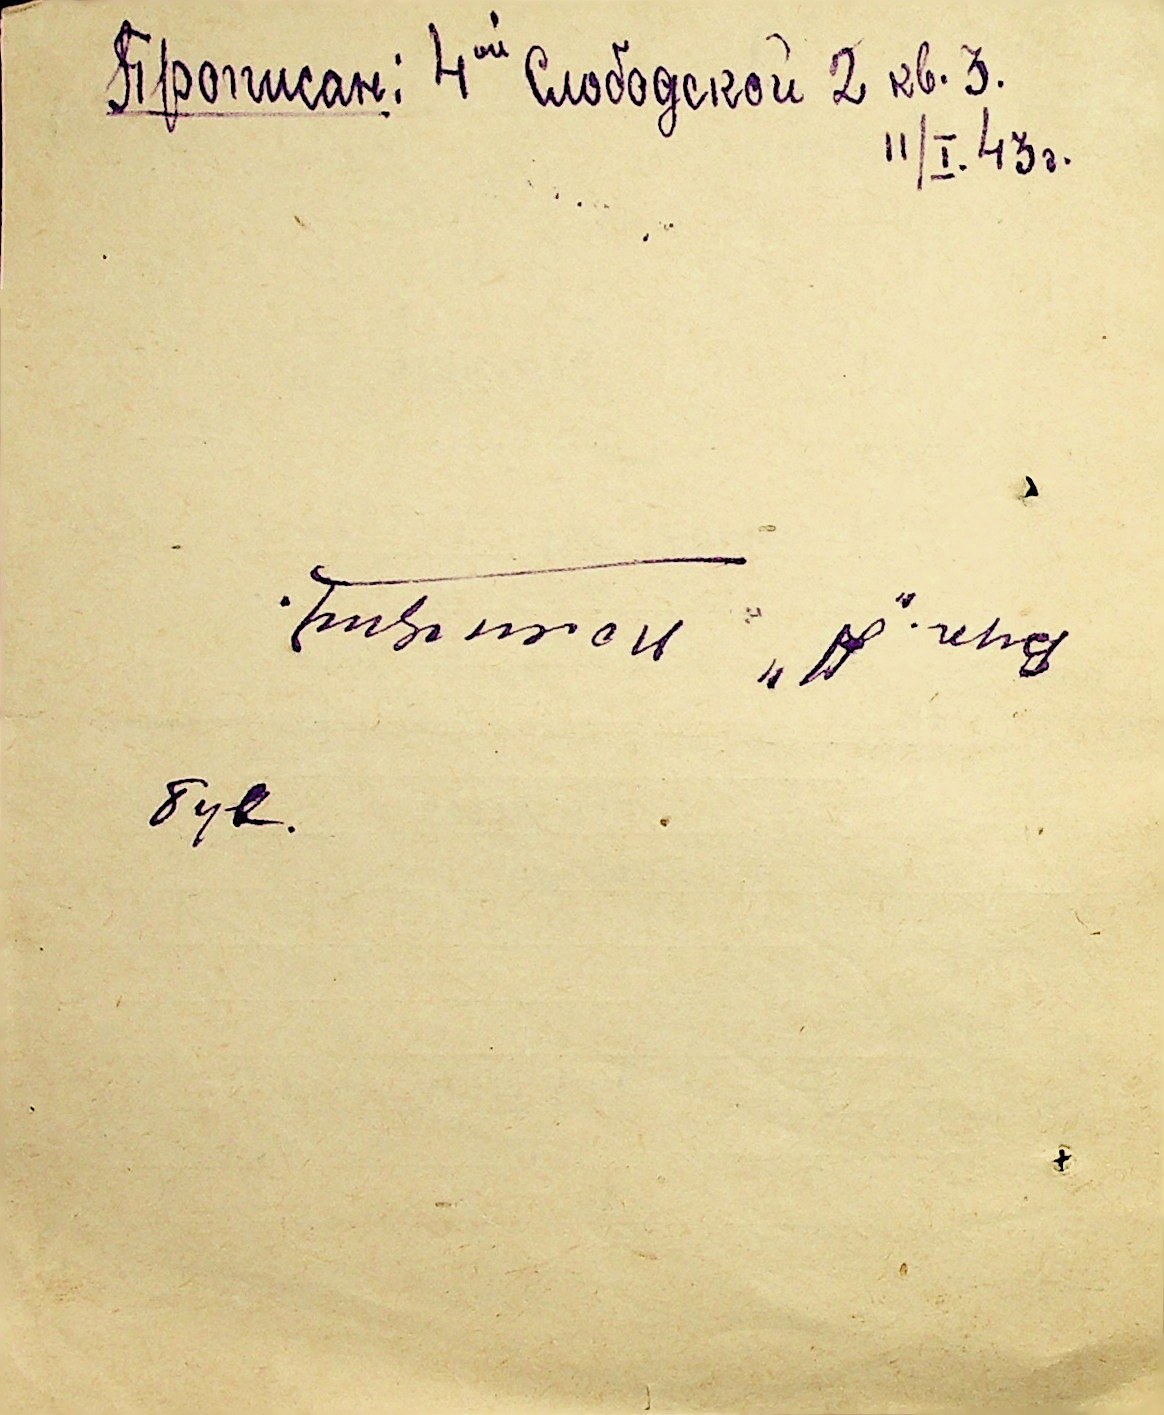 Прописан: 4ой Слободской 2 кв. 3.
11/I. 43г.
"А"
бук.